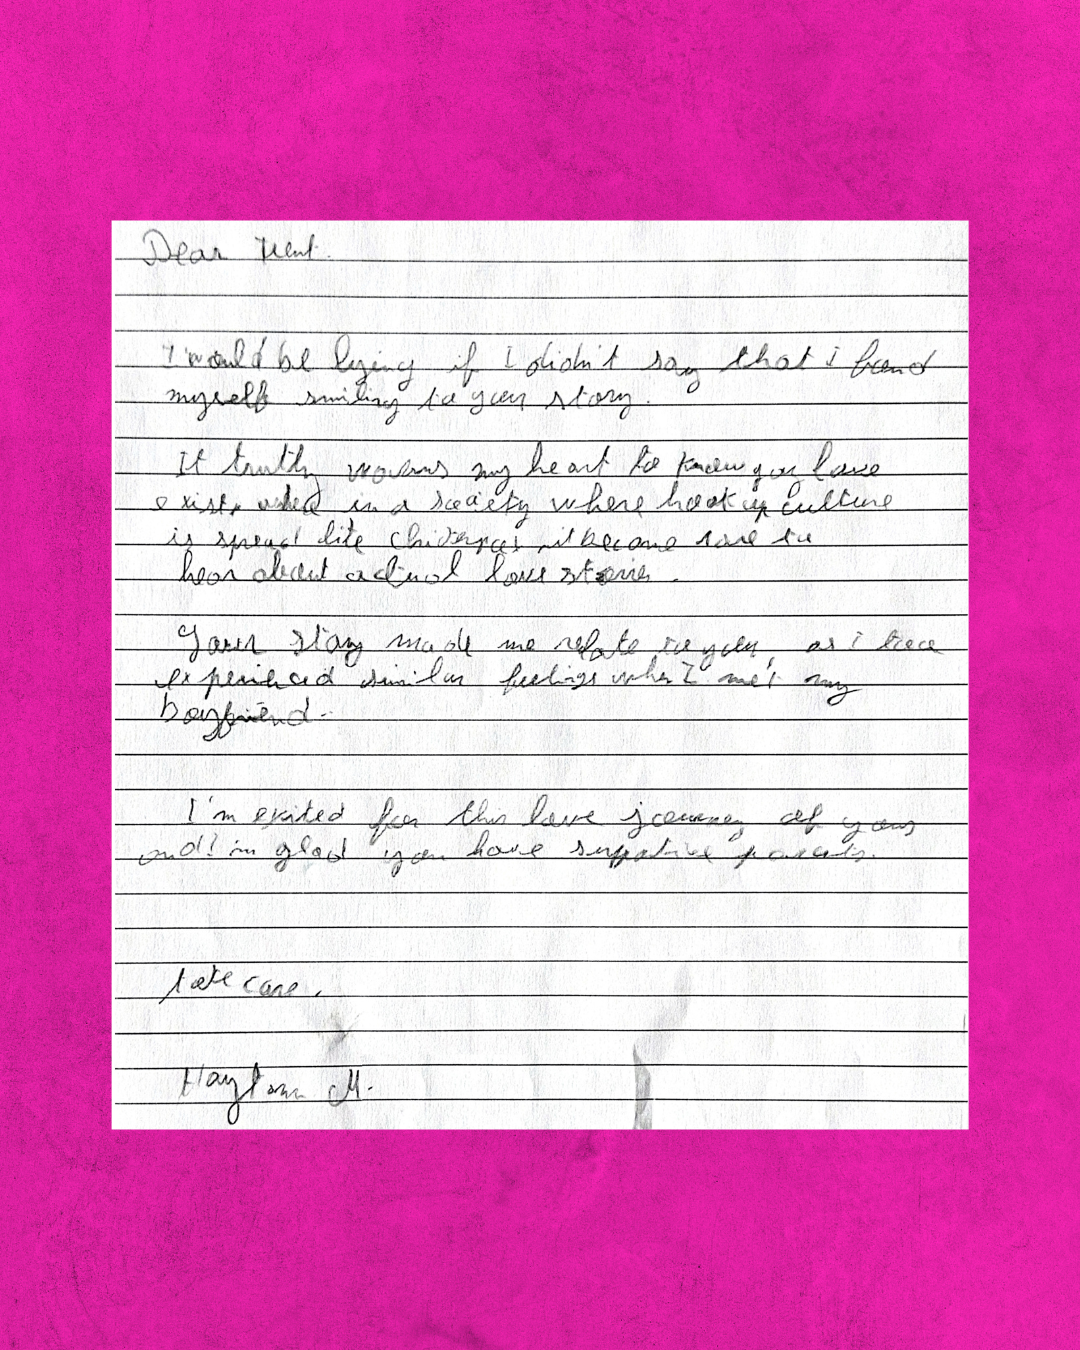 Dear
I would be lying if I didn't say that i found
myself smiling to your story.
It truthly warms my heart to know gay love
exist, in a society where hook up culture
is spread like it become rare to
hear about actual love stories.
Your story made me relate to you, as i have
experienced similar feelings when I met my
boyfriend.
I'm exited for this love journey of yours
and I'm glad you have supportive parents.
take care.
M.